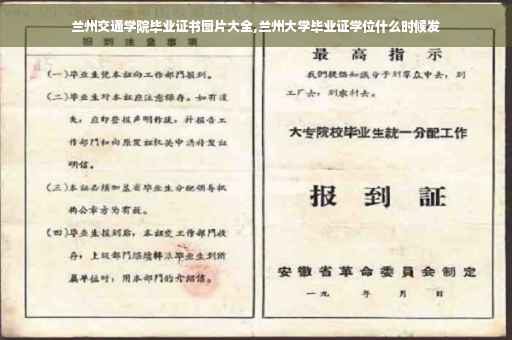 兰州交通学院毕业证书图片大全,兰州大学毕业证学位什么时候发
报到注意事项
(一)毕业生凭本证向工作部门报到。
(二)毕业生对本证应注意保存。如有遗
失,应即登报声明作废,并报告工
作部门和向原发证机关申请补发证
明信。
(三)本证必须加盖省毕业生分配领导机
构公章方为有效。
(四)毕业生报到后,本证交工作部门收
存;上级部门继续转派毕业生到所
属单位时,用本部门的介绍信。
最高指示
我们提倡知识分子到群众中去,到
工厂去,到农村去。
大专院校毕业生統一分配工作
报到証
安徽省革命委員会制定
一九 年 月 日